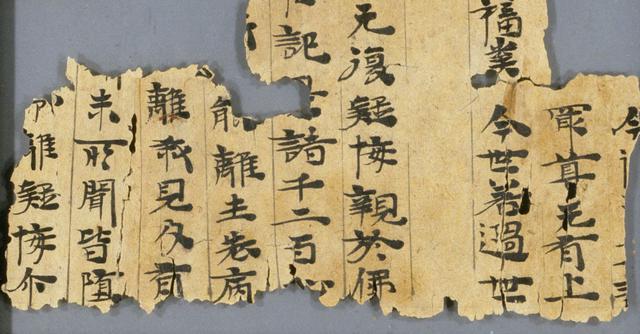 今
最尊无有上
福業 今世若過世
无復疑悔親於佛
記是諸千二百心
能離生老病
離我見及有
未所聞皆墮
離疑悔尒